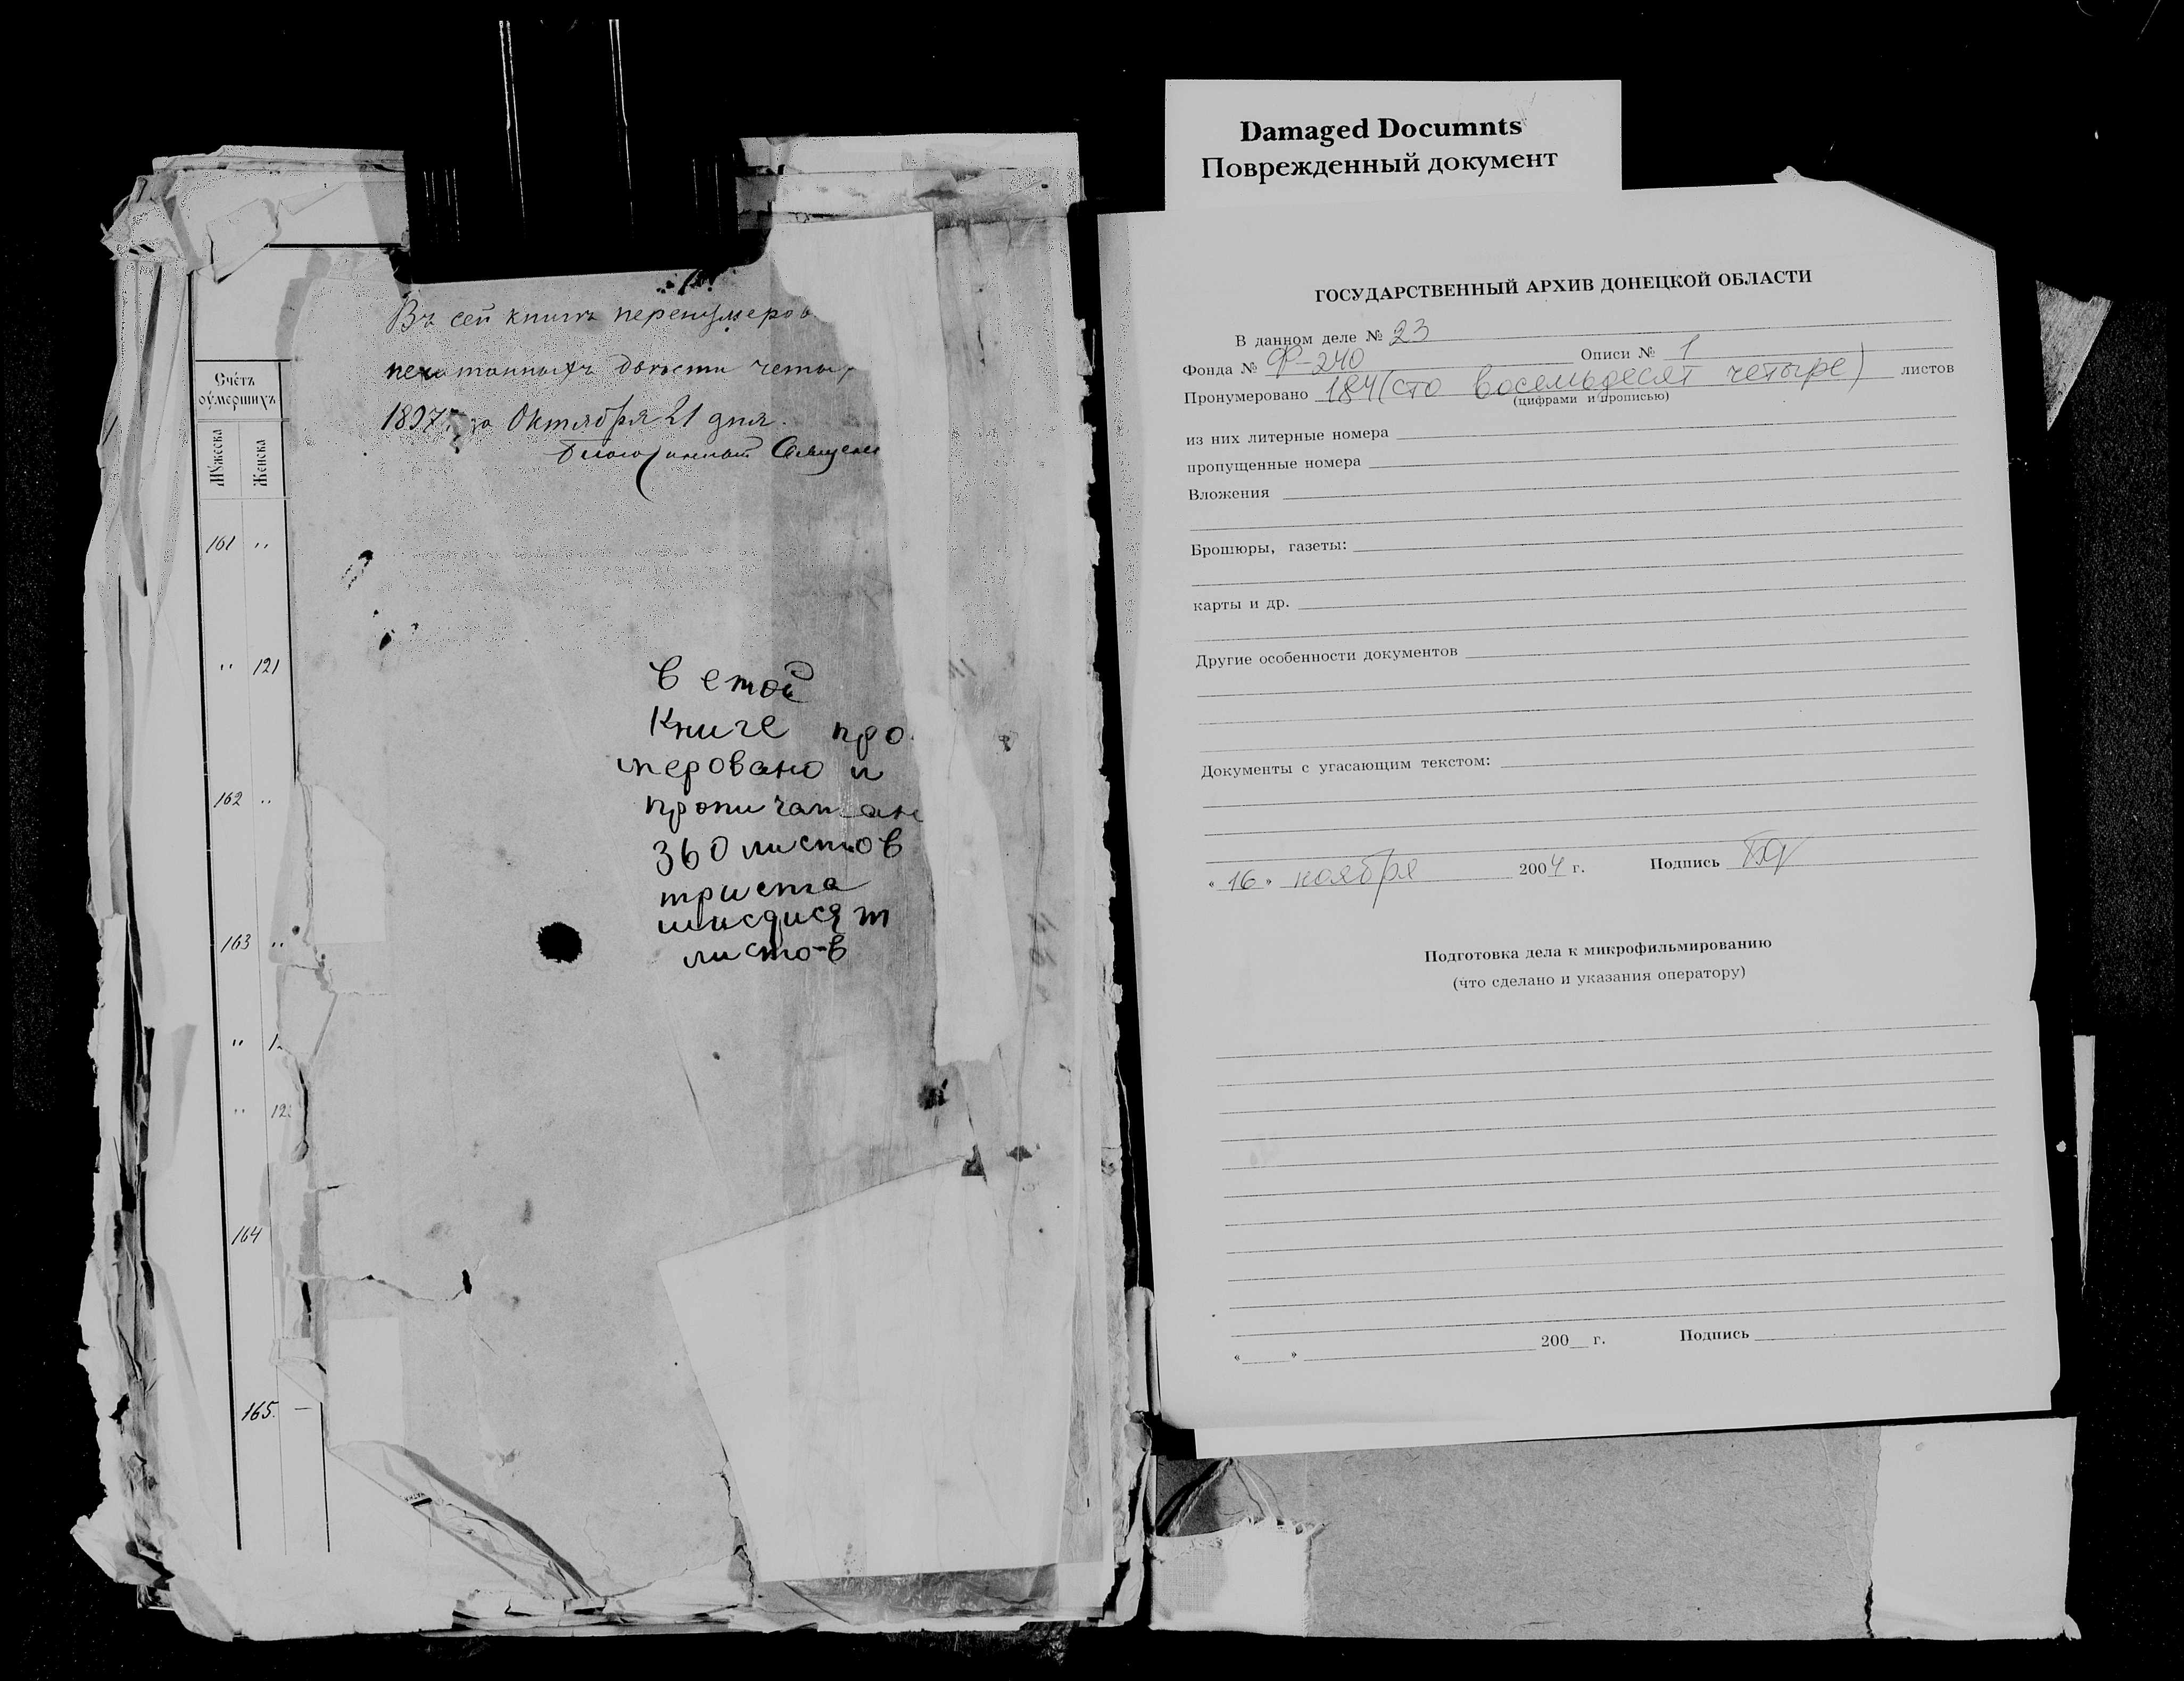 Damaged Documnts
Поврежденный документ
Счётъ
оумершихъ
Мужеска
Женска
161 "
" 121
162 "
163 "
"
"
164
165. —
Въ сей книгѣ перенумеров
печатанныхъ двѣсти четыр
1897 го Октября 21 дня.
Благочинный Священ
в етой
Книге про
меровано и
пропичатан
360 листов
триста
шисдисят
листов
ГОСУДАРСТВЕННЫЙ АРХИВ ДОНЕЦКОЙ ОБЛАСТИ
В данном деле № 23
Фонда № Ф-240 Описи № 1
Пронумеровано 184 (сто восемьдесят четыре) листов
(цифрами и прописью)
из них литерные номера
пропущенные номера
Вложения
Брошюры, газеты:
карты и др.
Другие особенности документов
Документы с угасающим текстом:
« 16 » ноября 2004 г. Подпись
Подготовка дела к микрофильмированию
(что сделано и указания оператору)
« » 200 г. Подпись